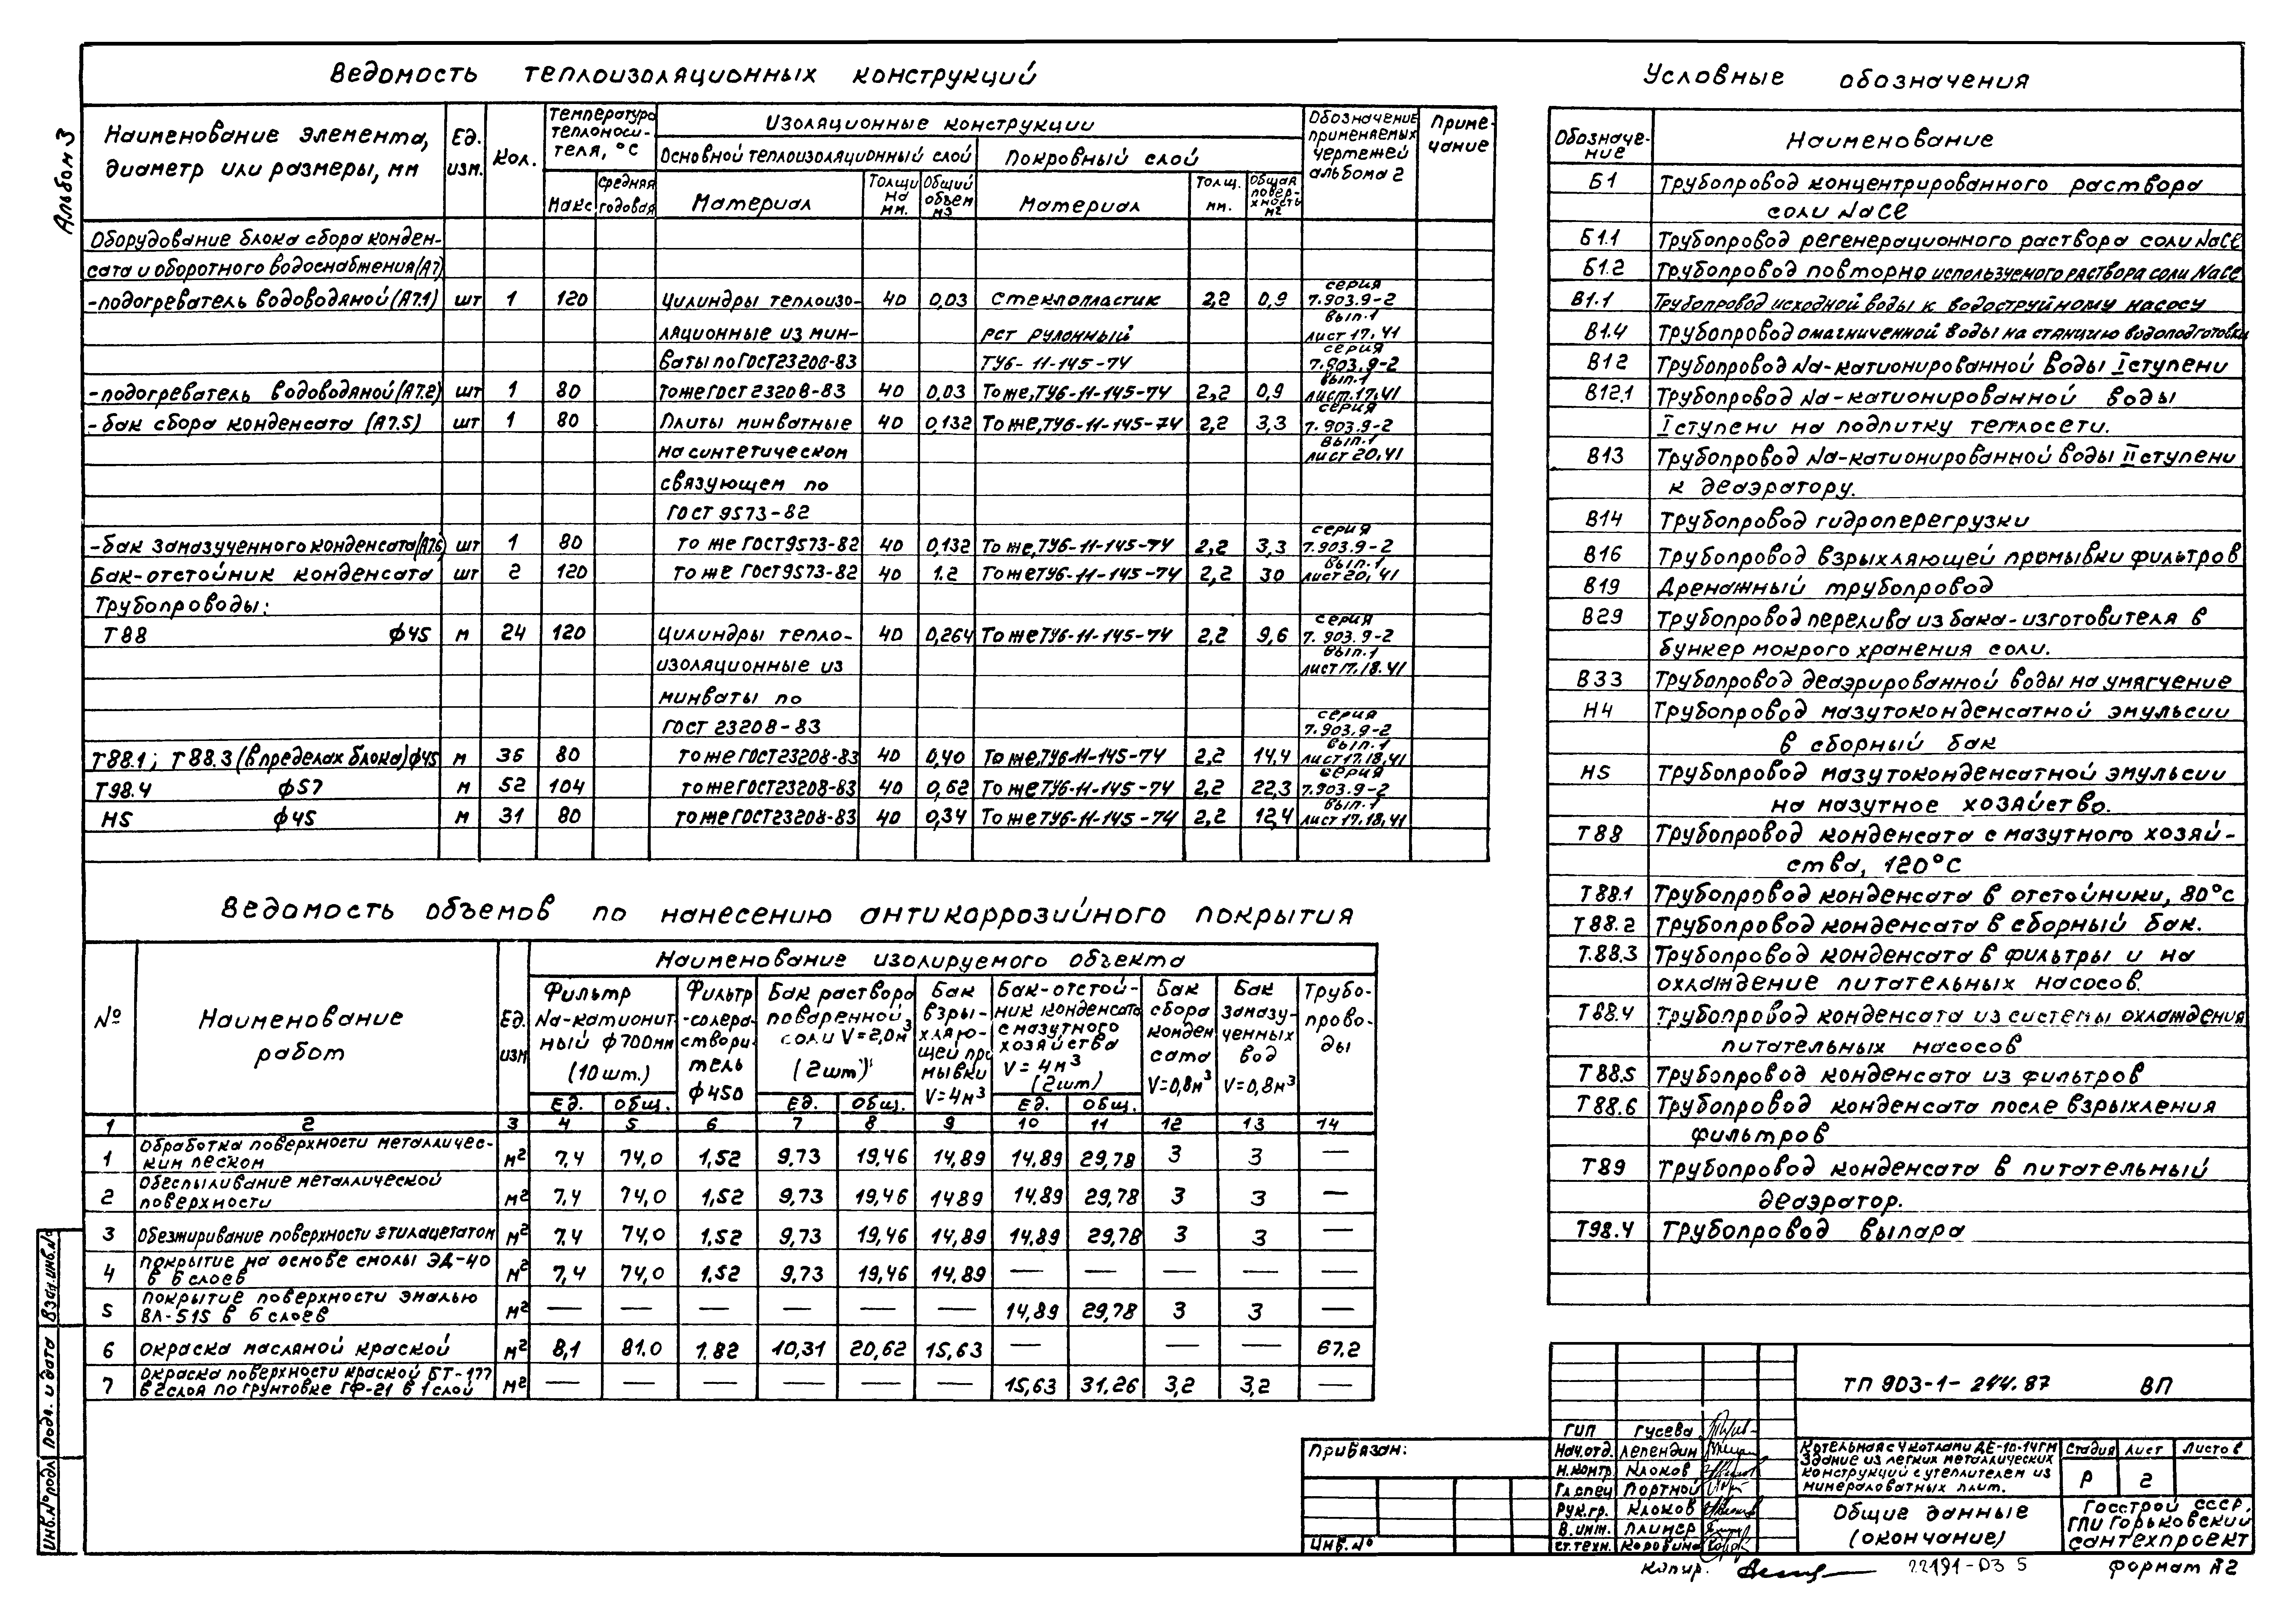 Альбом 3
Ведомость теплоизоляционных конструкций
Наименование элемента, диаметр или размеры, мм
Ед. изм.
Кол.
Температура теплоносителя, °С
Макс
Средняя годовая
Изоляционные конструкции
Основной теплоизоляционный слой
Покровный слой
Материал
Толщина мм.
Общий объем м3
Материал
Толщ. мм.
Общая поверхность м2
Обозначение применяемых чертежей альбома 2
Примечание
Оборудование блока сбора конден-
сата и оборотного водоснабжения (А7)
-подогреватель водоводяной (А7.1) шт 1 120 Цилиндры теплоизо- 40 0,03 Стеклопластик 2,2 0,9 серия 7.903.9-2
ляционные из мин- рст рулонный вып.1 лист 17,41
ваты по ГОСТ 23208-83 ТУ6-11-145-74 серия 7.903.9-2
-подогреватель водоводяной (А7.2) шт 1 80 То же ГОСТ 23208-83 40 0,03 То же, ТУ6-11-145-74 2,2 0,9 вып.1 лист.17,41
-бак сбора конденсата (А7.5) шт 1 80 Плиты минватные 40 0,132 То же, ТУ6-11-145-74 2,2 3,3 серия 7.903.9-2
на синтетическом вып.1 лист 20,41
связующем по
ГОСТ 9573-82
-бак замазученного конденсата (А7.6) шт 1 80 то же ГОСТ 9573-82 40 0,132 То же, ТУ6-11-145-74 2,2 3,3 серия 7.903.9-2
Бак-отстойник конденсата шт 2 120 то же ГОСТ 9573-82 40 1.2 То же ТУ6-11-145-74 2,2 30 вып.1 лист 20,41
Трубопроводы:
Т88 ф45 м 24 120 Цилиндры тепло- 40 0,264 То же ТУ6-11-145-74 2,2 9,6 серия 7.903.9-2
изоляционные из вып.1 лист 17.18.41
минваты по
ГОСТ 23208-83 серия 7.903.9-2
Т88.1; Т88.3 (в пределах блока) ф45 м 36 80 то же ГОСТ 23208-83 40 0,40 То же, ТУ6-11-145-74 2,2 14,4 вып.1 лист 17.18,41
Т98.4 ф57 м 52 104 то же ГОСТ 23208-83 40 0,62 То же ТУ6-11-145-74 2,2 22,3 серия 7.903.9-2
Н5 ф45 м 31 80 то же ГОСТ 23208-83 40 0,34 То же ТУ6-11-145-74 2,2 12,4 вып.1 лист 17.18,41
Ведомость объемов по нанесению антикоррозийного покрытия
№
Наименование работ
Ед. изм
Наименование изолируемого объекта
Фильтр Na-катионитный ф700мм (10 шт.)
Фильтр -солерастворитель ф450
Бак раствора поваренной соли V=2,0м³ (2шт)
Бак взрыхляющей промывки V=4м³
Бак-отстойник конденсата с мазутного хозяйства V=4м³ (2шт)
Бак сбора конденсата V=0,8м³
Бак замазученных вод V=0,8м³
Трубопроводы
Ед. Общ. Ед. Общ. Ед. Общ.
1 2 3 4 5 6 7 8 9 10 11 12 13 14
1 Обработка поверхности металлическим песком м² 7,4 74,0 1,52 9,73 19,46 14,89 14.89 29,78 3 3 —
2 Обеспыливание металлической поверхности м² 7,4 74,0 1,52 9,73 19,46 1489 14.89 29,78 3 3 —
3 Обезжиривание поверхности этилацетатом м² 7.4 74,0 1,52 9,73 19,46 14,89 14,89 29,78 3 3 —
4 Покрытие на основе смолы ЭД-40 в 6 слоев м² 7,4 74,0 1.52 9,73 19,46 14,89 — — — — —
5 Покрытие поверхности эмалью ВЛ-515 в 6 слоев м² — — — — — — 14,89 29,78 3 3 —
6 Окраска масляной краской м² 8,1 81.0 1.82 10,31 20,62 15,63 — — — 67.2
7 Окраска поверхности краской БТ-177 в 2 слоя по грунтовке ГФ-21 в 1 слой м² — — — — — — 15,63 31,26 3,2 3,2 —
Условные обозначения
Обозначение Наименование
Б1 Трубопровод концентрированного раствора
соли NaCl
Б1.1 Трубопровод регенерационного раствора соли NaCl
Б1.2 Трубопровод повторно используемого раствора соли NaCl
В1.1 Трубопровод исходной воды к водоструйному насосу
В1.4 Трубопровод омагниченной воды на станцию водоподготовки
В12 Трубопровод Na-катионированной воды I ступени
В12.1 Трубопровод Na-катионированной воды
I ступени на подпитку теплосети.
В13 Трубопровод Na-катионированной воды II ступени
к деаэратору.
В14 Трубопровод гидроперегрузки
В16 Трубопровод взрыхляющей промывки фильтров
В19 Дренажный трубопровод
В29 Трубопровод перелива из бака-изготовителя в
бункер мокрого хранения соли.
В33 Трубопровод деаэрированной воды на умягчение
Н4 Трубопровод мазутоконденсатной эмульсии
в сборный бак
Н5 Трубопровод мазутоконденсатной эмульсии
на мазутное хозяйство.
Т88 Трубопровод конденсата с мазутного хозяй-
ства, 120°С
Т88.1 Трубопровод конденсата в отстойники, 80°С
Т88.2 Трубопровод конденсата в сборный бак.
Т.88.3 Трубопровод конденсата в фильтры и на
охлаждение питательных насосов.
Т88.4 Трубопровод конденсата из системы охлаждения
питательных насосов
Т88.5 Трубопровод конденсата из фильтров
Т88.6 Трубопровод конденсата после взрыхления
фильтров
Т89 Трубопровод конденсата в питательный
деаэратор.
Т98.4 Трубопровод выпара
Взам.инв.№
Подп. и дата
Инв.№ подл
Привязан:
Инв.№
ТП 903-1-244.87 ВП
ГИП Гусева
Нач.отд. Лепендин
Н.контр Клоков
Гл.спец Портной
Рук.гр. Клоков
В.инж. Плинер
Ст.техн. Коровина
Котельная с 4 котлами ДЕ-10-14ГМ
Здание из легких металлических
конструкций с утеплителем из
минераловатных плит.
Стадия Лист Листов
Р 2
Общие данные
(окончание)
Госстрой СССР.
ГПИ Горьковский
сантехпроект
Копир.
22191-03 5
Формат А2